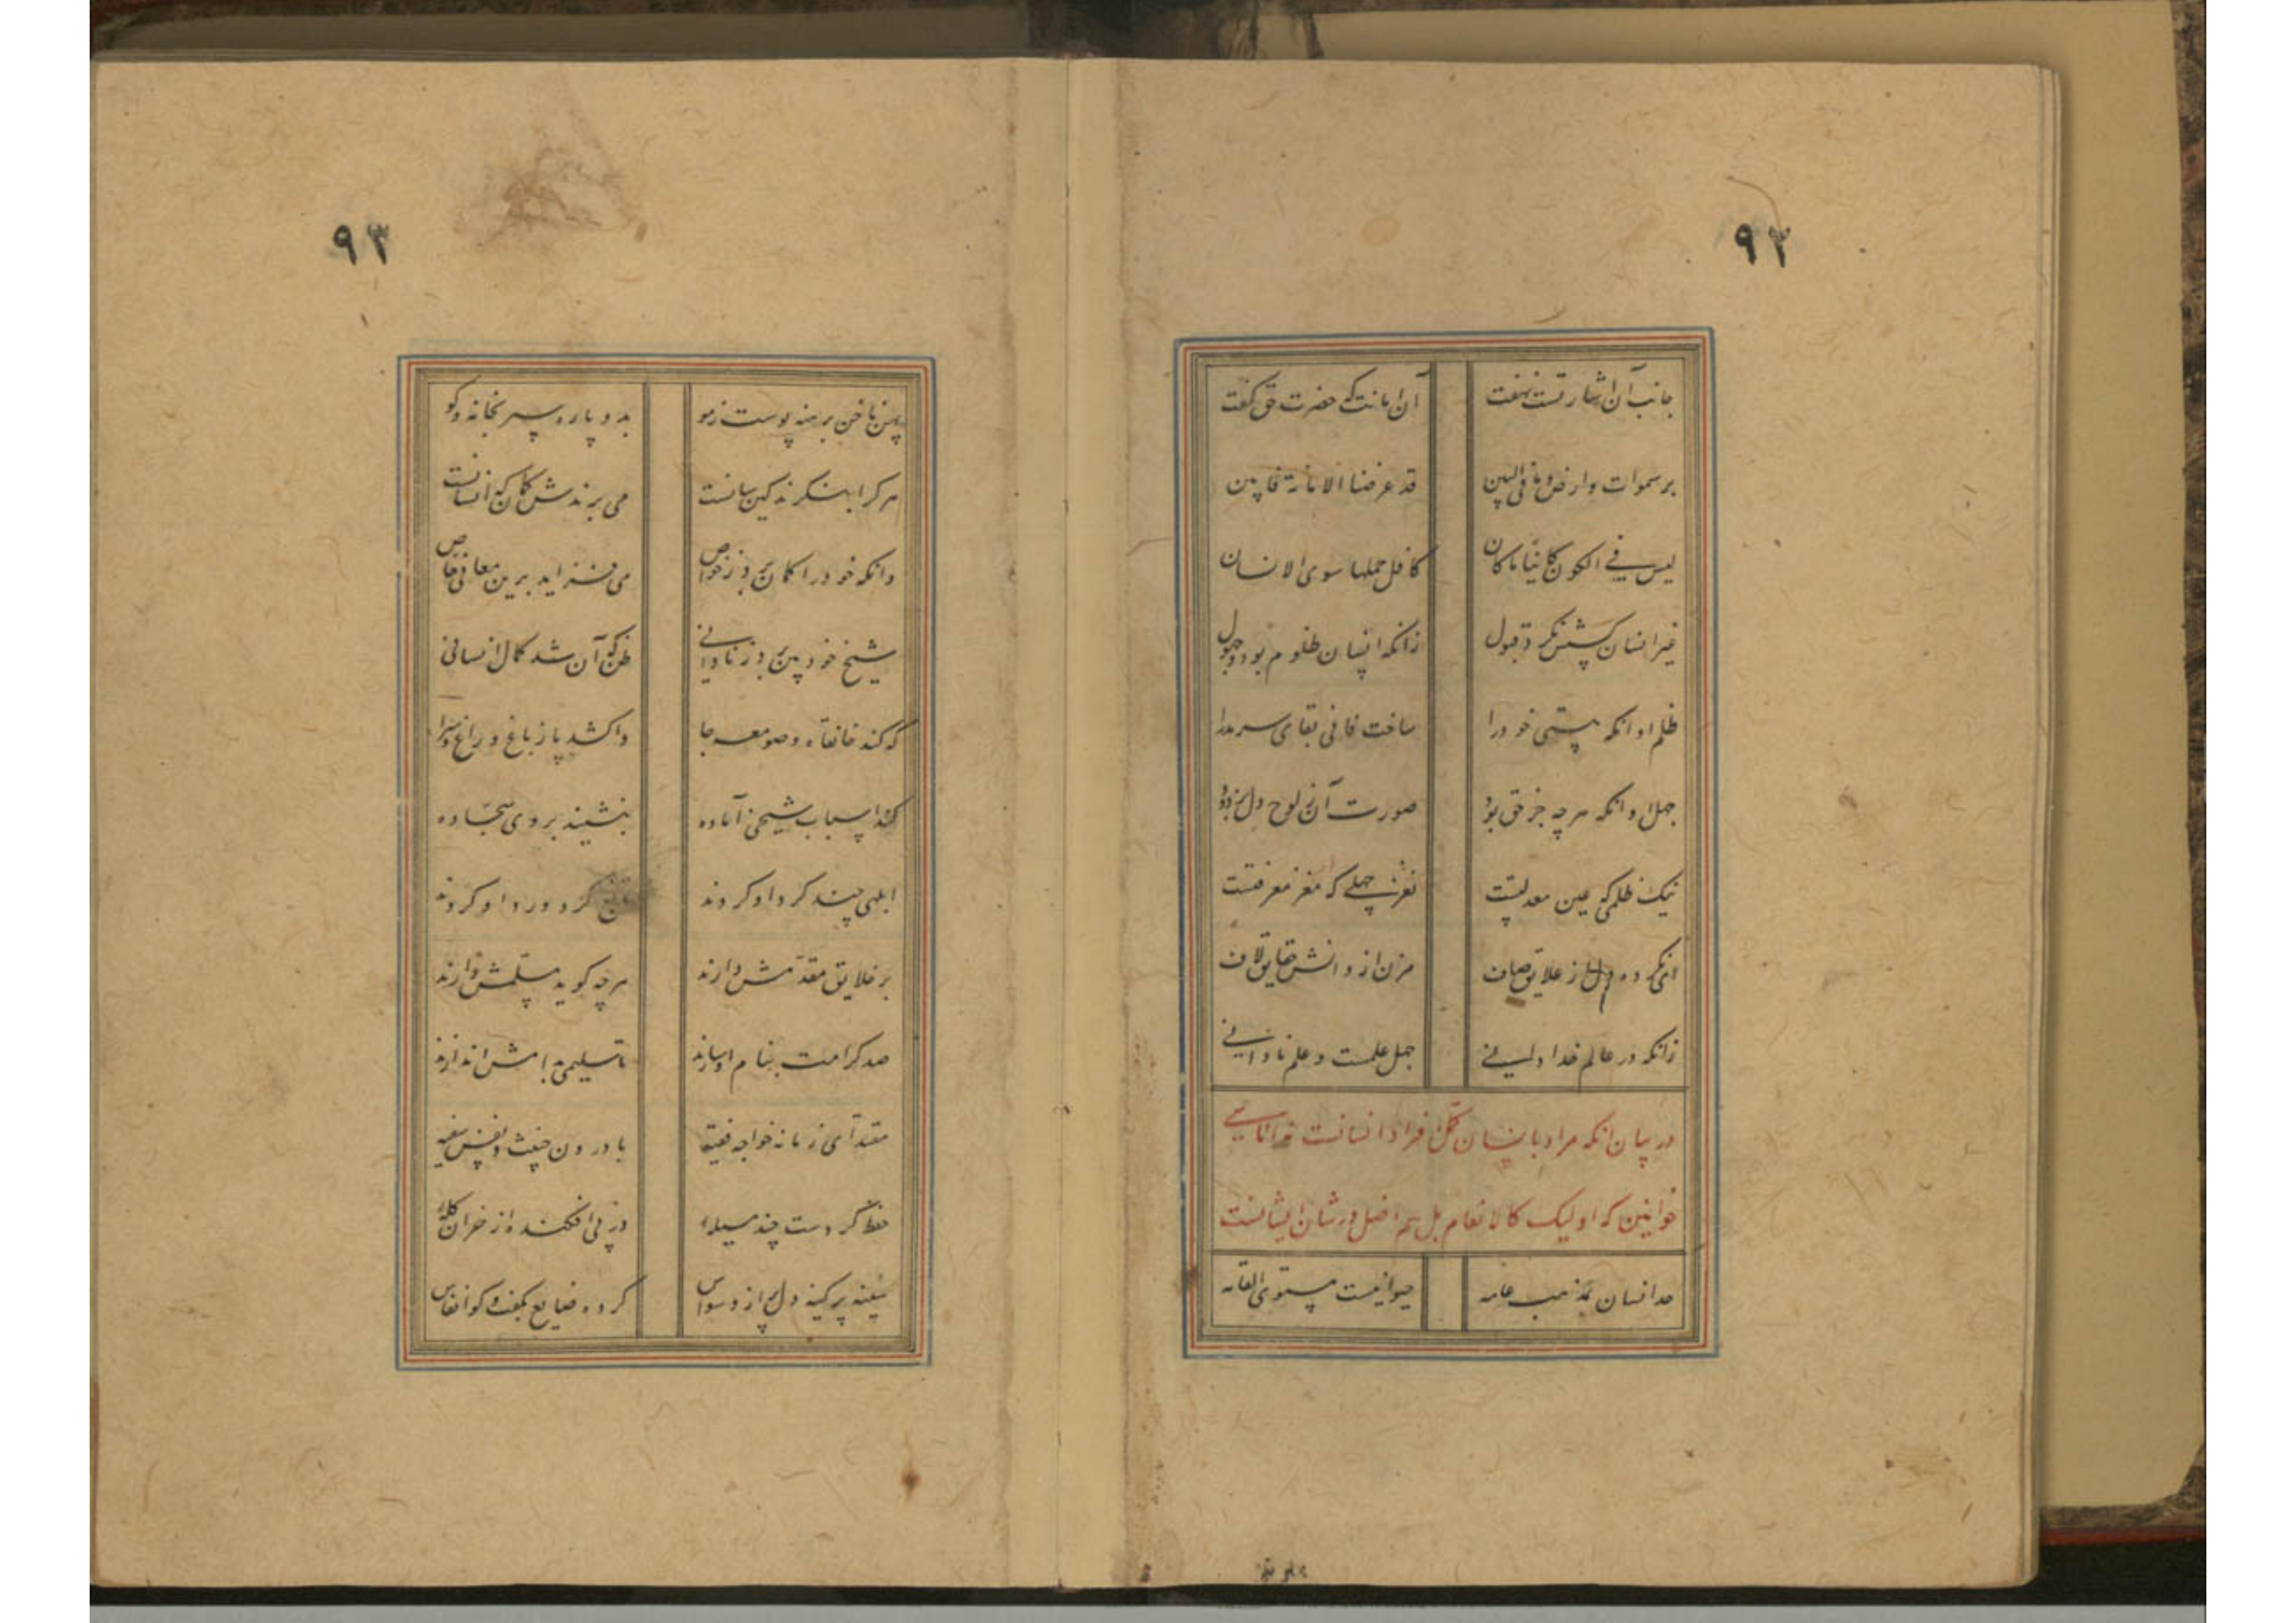 ۹۲
جانب آن اشارتست نهفت آن امانت که حضرت حق گفت
بر سموات و ارض و ما فی البین قد عرضنا الامانة فابین
لیس فی الکون کاینا ما کان کافل حملها سوی الانسان
غیر انسان کسش نکرد قبول زانکه انسان ظلوم بود و جهول
ظلم او انکه هستی خود را ساخت فانی بقای سرمد را
جهل او انکه هر چه جز حق بود صورت آن ز لوح دل بزدود
نیک ظلمی که عین معدلتست نغز جهلی که مغز معرفتست
ای نکرده دل از علایق صاف مزن از دانش حقایق لاف
زانکه در عالم خدا دانی جهل علمست و علم نادانی
در بیان انکه مراد بانسان کمل افراد انسانست نه اناسی
حیوانین که اولیک کالانعام بل هم اضل در شان ایشانست
حد انسان بمذهب عامه حیوانیست مستوی القامه
۹۳
پهن ناخن برهنه پوست ز مو بدو پا ره سپر بخانه و کو
هر کرا بنکرند کین سانست می برندش کمان که انسانست
وانکه خود را کمان برد ز خواص می فزاید برین معانی خاص
شیخ خود بین برد ز نادانی ظن که آن شد کمال انسانی
که کند خانقاه و صومعه جا واکشد پا ز باغ و راغ و سرا
کند اسباب شیخی آماده بنشیند بروی سجاده
ابلهی چند کرد او کردند کرد و درد او کردند
بر خلایق مقدمش دارند هر چه کوید مسلمش دارند
صد کرامت بنام او سازند تا سلیمی بدامش اندازند
مقتدای زمانه خواجه فقیه با درون خبیث و نفس سفیه
حفظ کردست چند مسیله را در پی افکنده از خران کله را
سینه پر کینه دل پر از وسواس کرده ضایع بکفت و کو انفاس